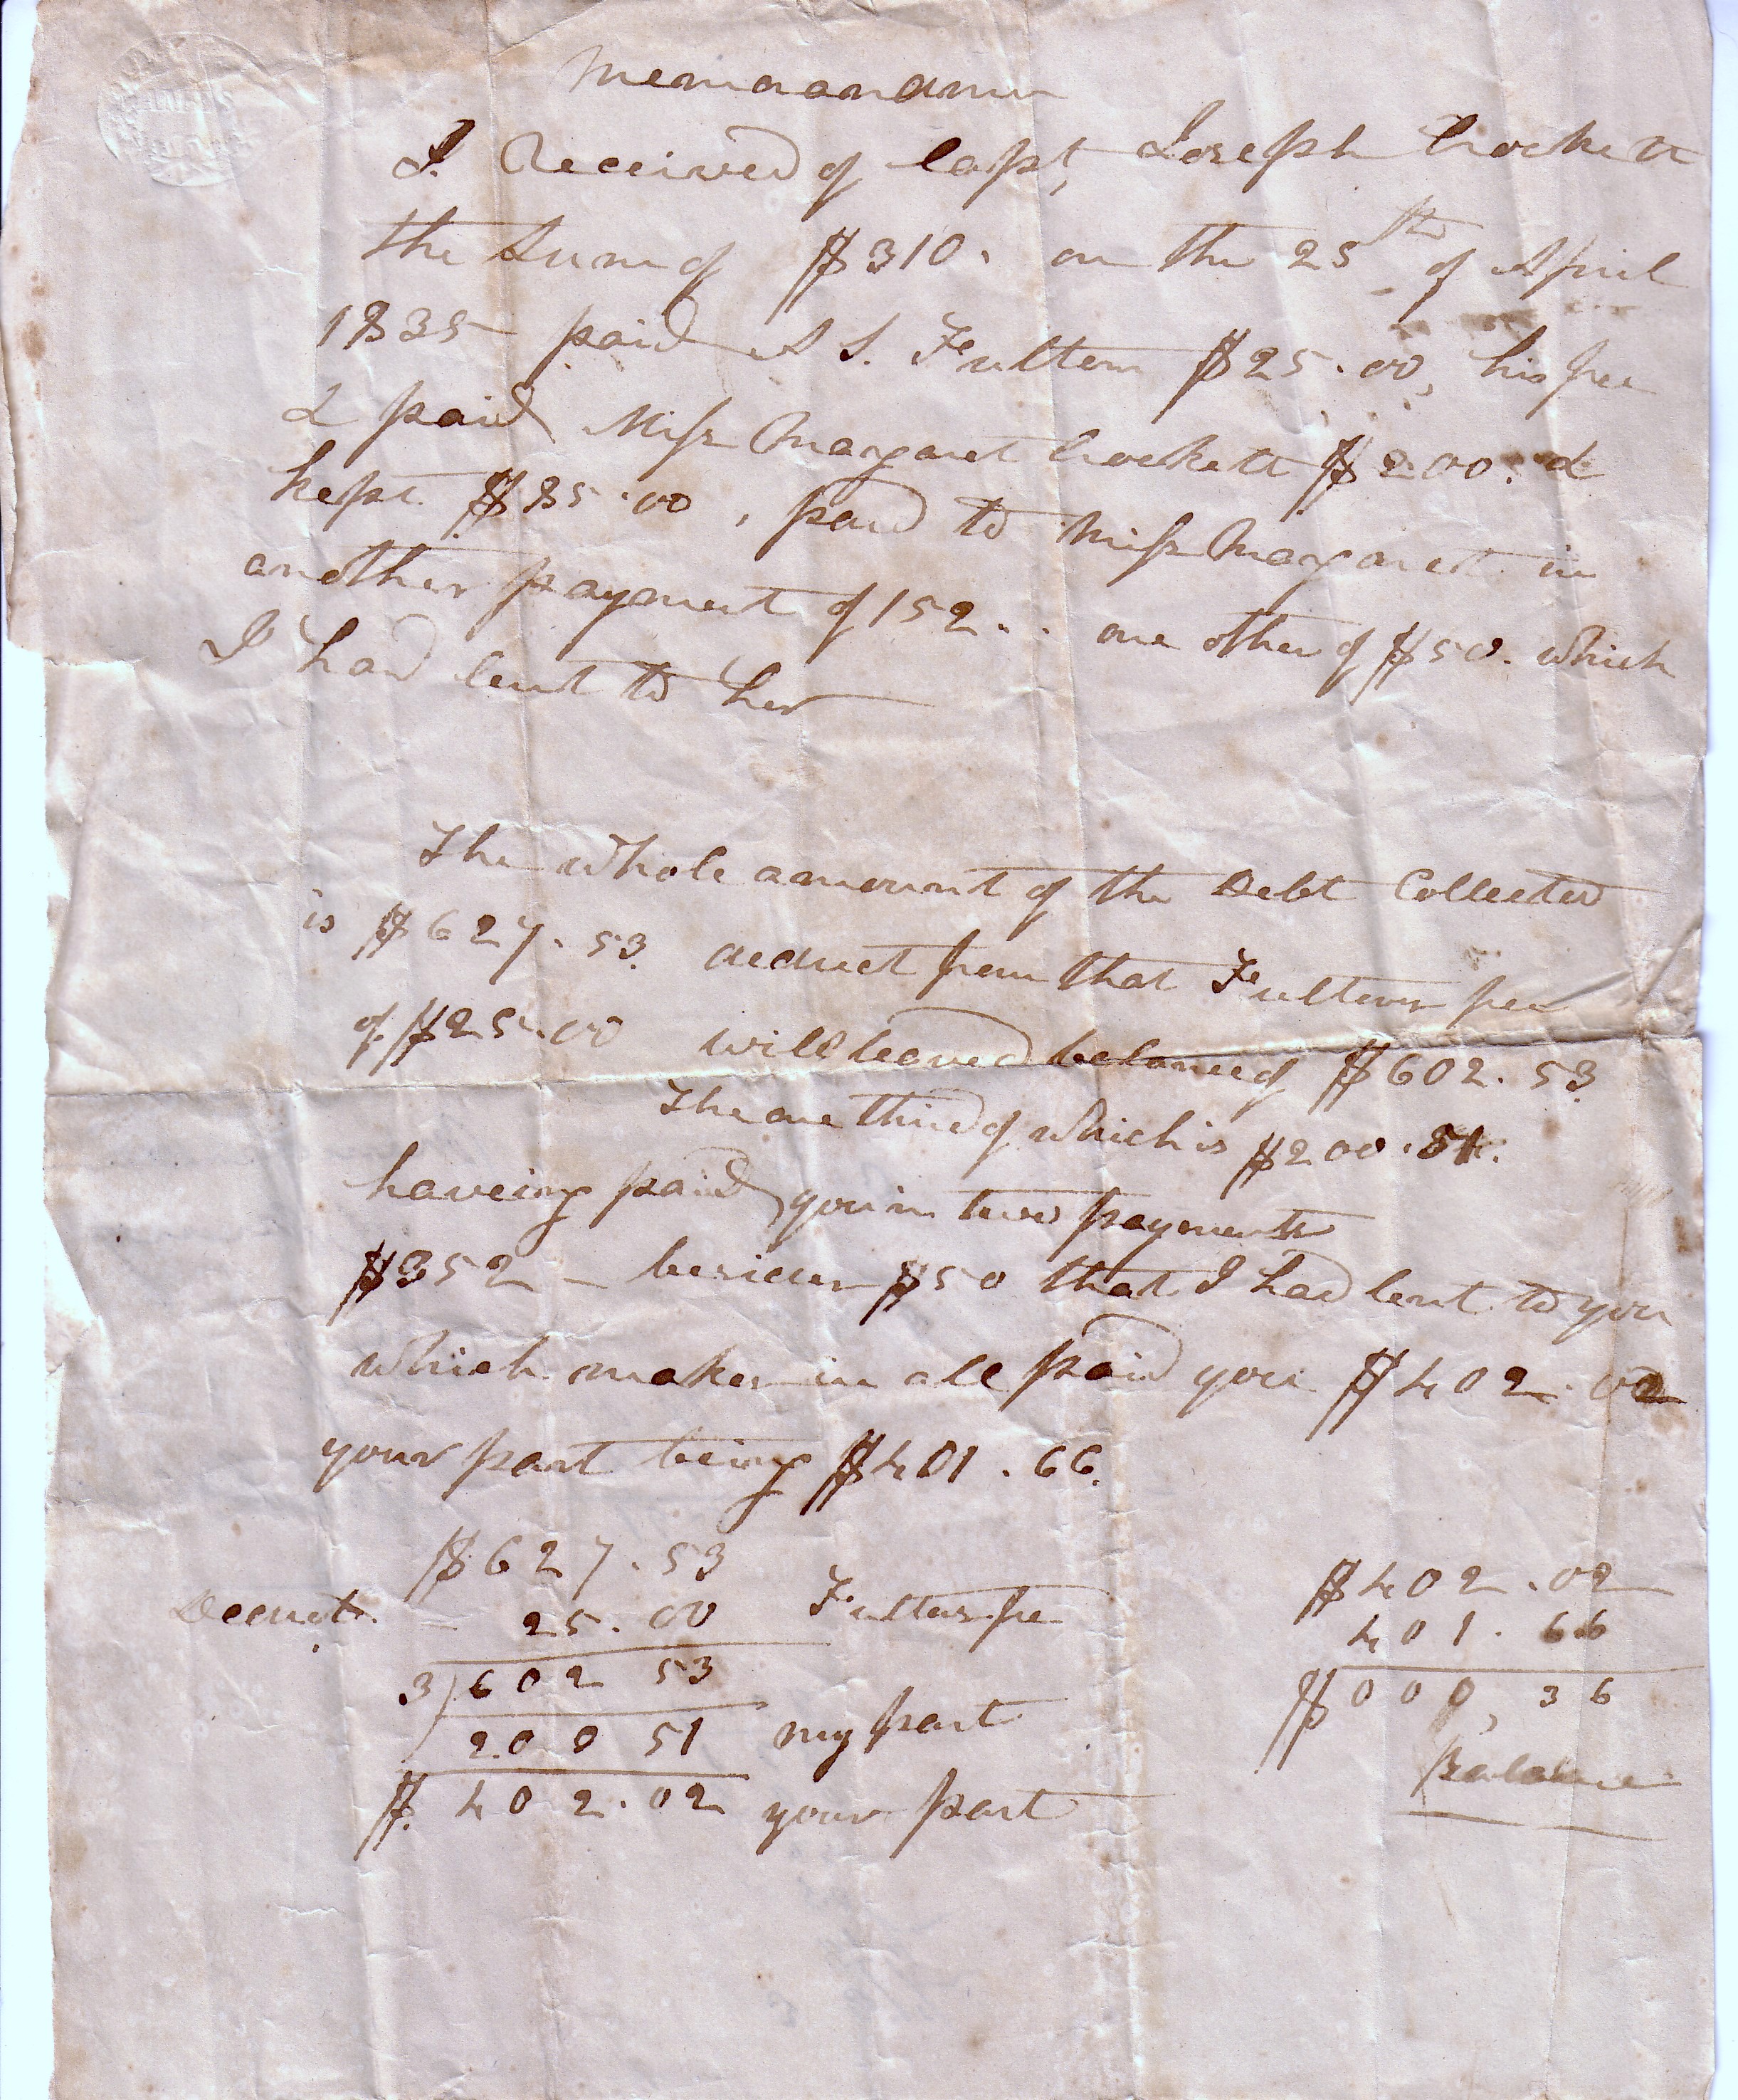 Memorandum
I Received of Capt, Joseph Crockett
the Sum of $310. on the 25th of April
1835 paid A S. Fulton $25.00, his fee
& paid Miss Margaret Crockett $200. &
kept $85.00, paid to Miss Margaret in
another payment of 152.. one other of $50. which
I had lent to her
The whole amount of the Debt Collected
is $627.53. deduct from that Fultons fee
of $25.00 will leave a balance of $602.53
The one third of which is $200.51.
haveing paid you in two payments
$352 - besides $50 that I had lent to you
which makes in all paid you $402.02
your part being $401.66.
$627.53
Deduct. - 25.00 Fultons fee
3) 602 53
200 51 my part
$. 402.02 your part
$402.02
401.66
$000,36
balance